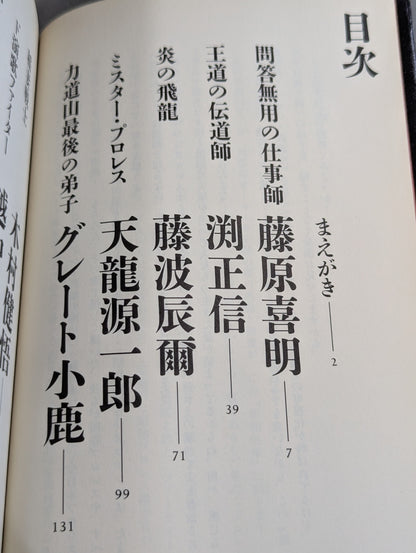 目次
まえがき――2
問答無用の仕事師 藤原喜明――7
王道の伝道師 渕正信――39
炎の飛龍 藤波辰爾――71
ミスター・プロレス 天龍源一郎――99
力道山最後の弟子 グレート小鹿――131
木村健悟